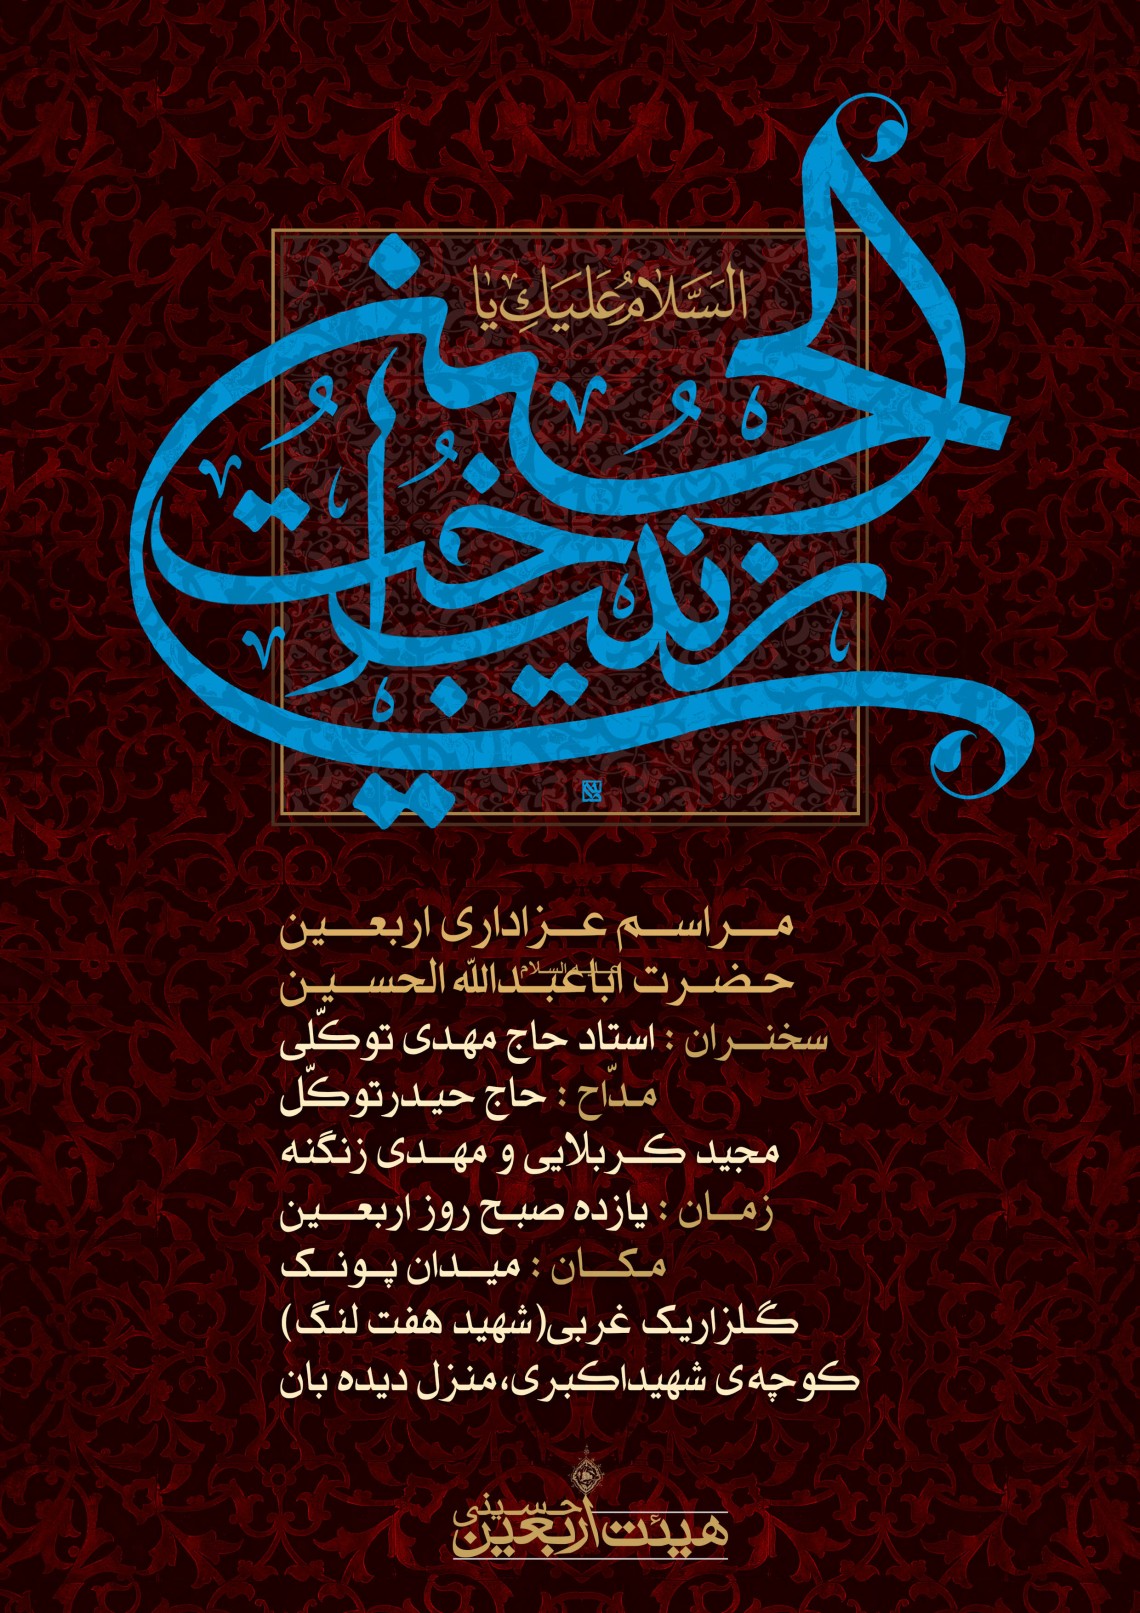 السَّلامُ عَلَیكِ یا
زینب اخت الحسین
مراسم عزاداری اربعین
حضرت اباعبدالله الحسین علیه السلام
سخنران : استاد حاج مهدی توکّلی
مدّاح : حاج حیدرتوکّل
مجید کربلایی و مهدی زنگنه
زمان : یازده صبح روز اربعین
مکان : میدان پونک
گلزاریک غربی(شهید هفت لنگ)
کوچه‌ی شهیداکبری،منزل دیده بان
هیئت اربعین حسینی